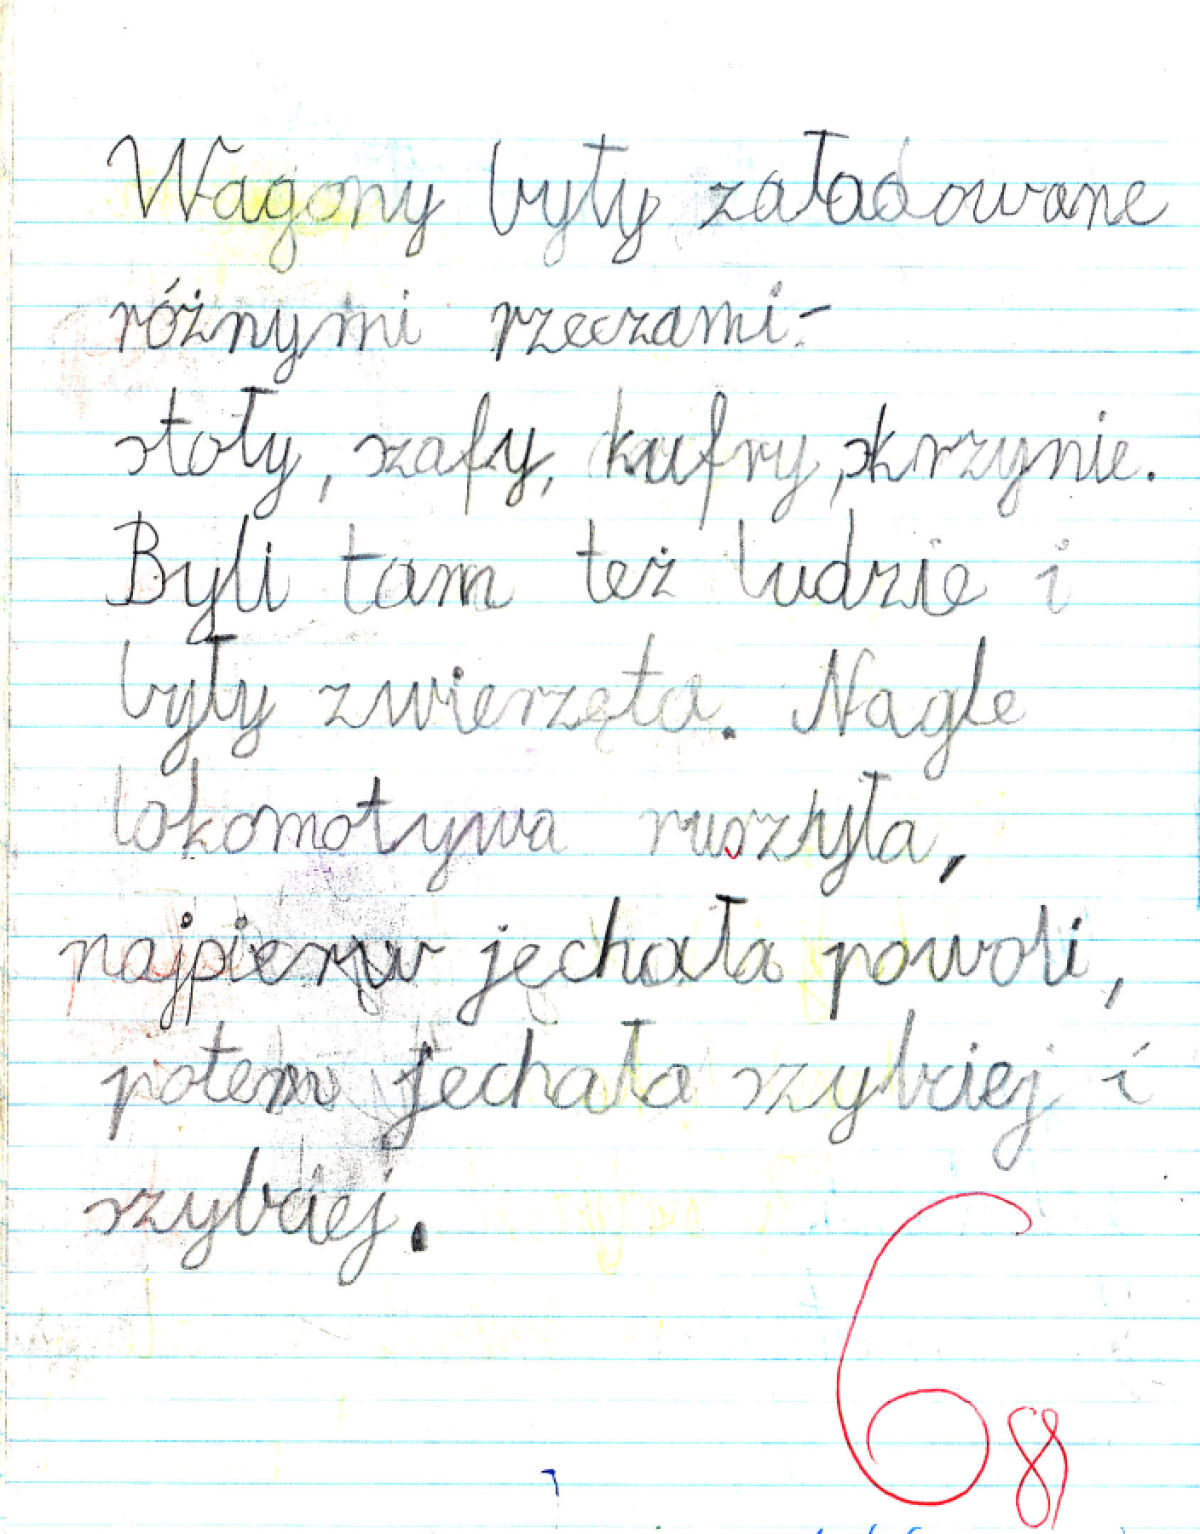 Wagony były załadowane
różnymi rzeczami-
stoły, szafy, kufry, skrzynie.
Byli tam też ludzie i
były zwierzęta. Nagle
lokomotywa ruszyła,
najpierw jechała powoli,
potem jechała szybciej i
szybciej.
6